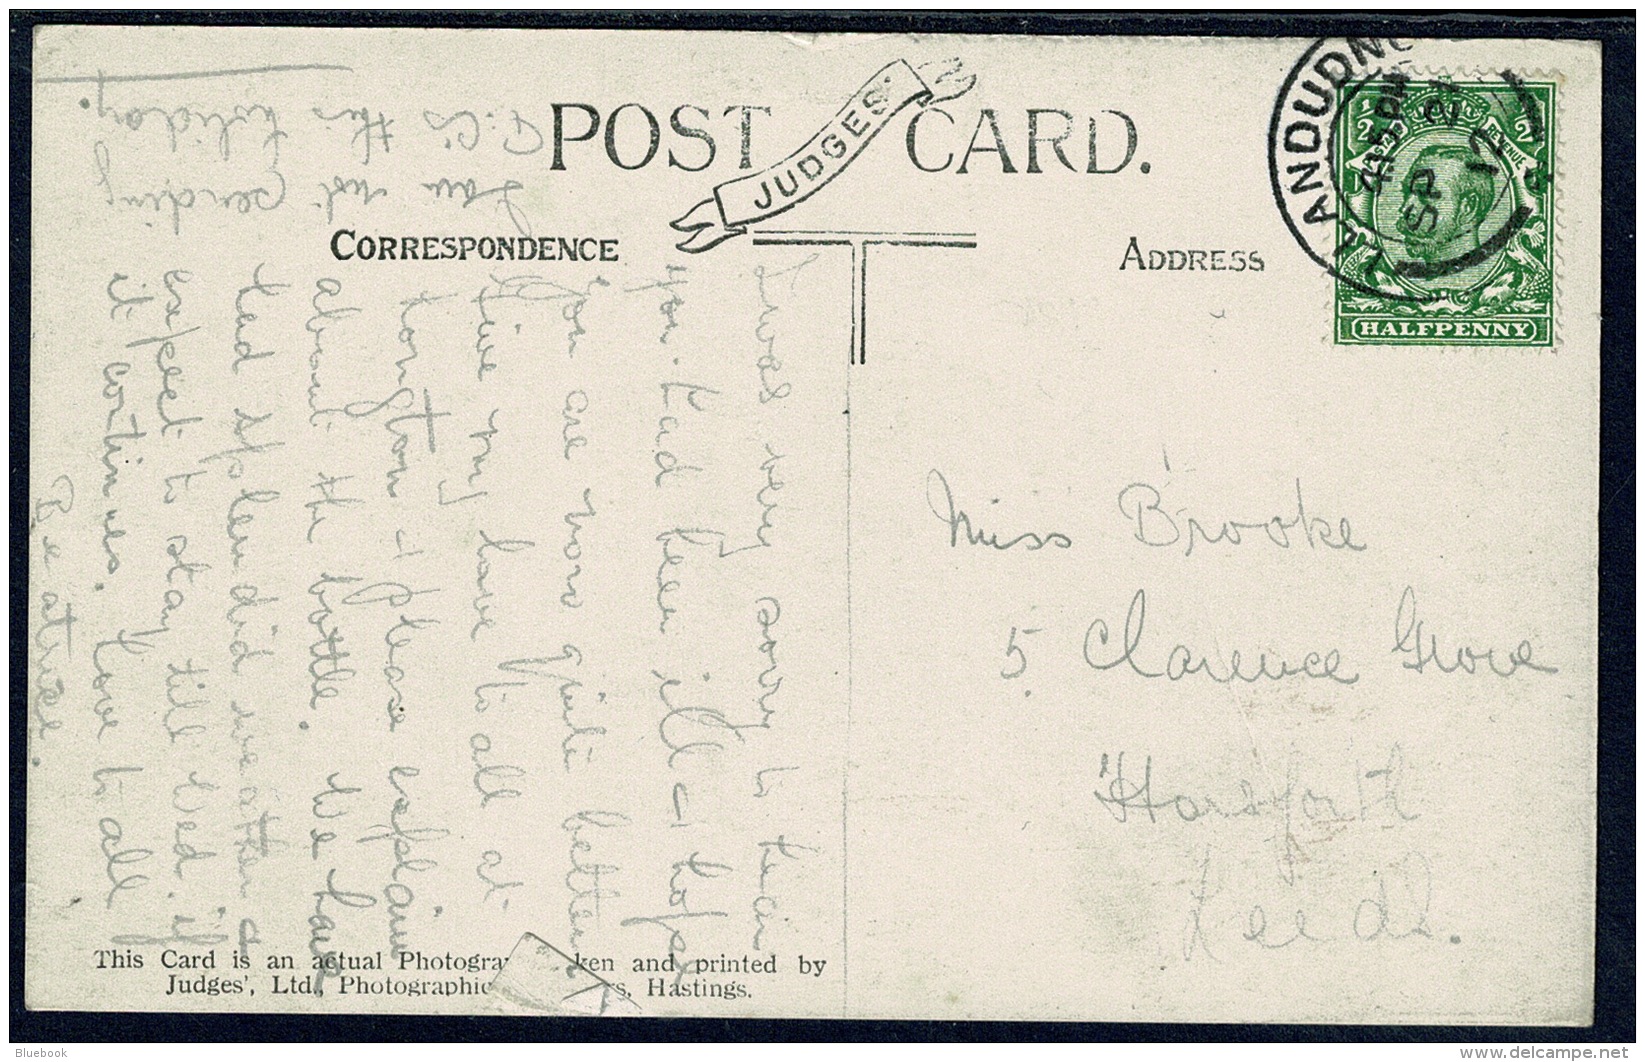 POST CARD.
JUDGES'
CORRESPONDENCE
ADDRESS
LLANDUDNO
SP 21
12
REVENUE
HALFPENNY
I was very sorry to hear
you had been ill & hope
you are now quite better
Give my love to all at
Longton & please explain
about the bottle. We have
had splendid weather &
expect to stay till Wed. if
it continues. Love to all
Beatrice.
I am not sending
P.C's this holiday.
Miss Brooke
5. Clarence Grove
Horsforth
Leeds.
This Card is an actual Photogra ken and printed by
Judges', Ltd., Photographic s, Hastings.
Bluebook
delcampe.net